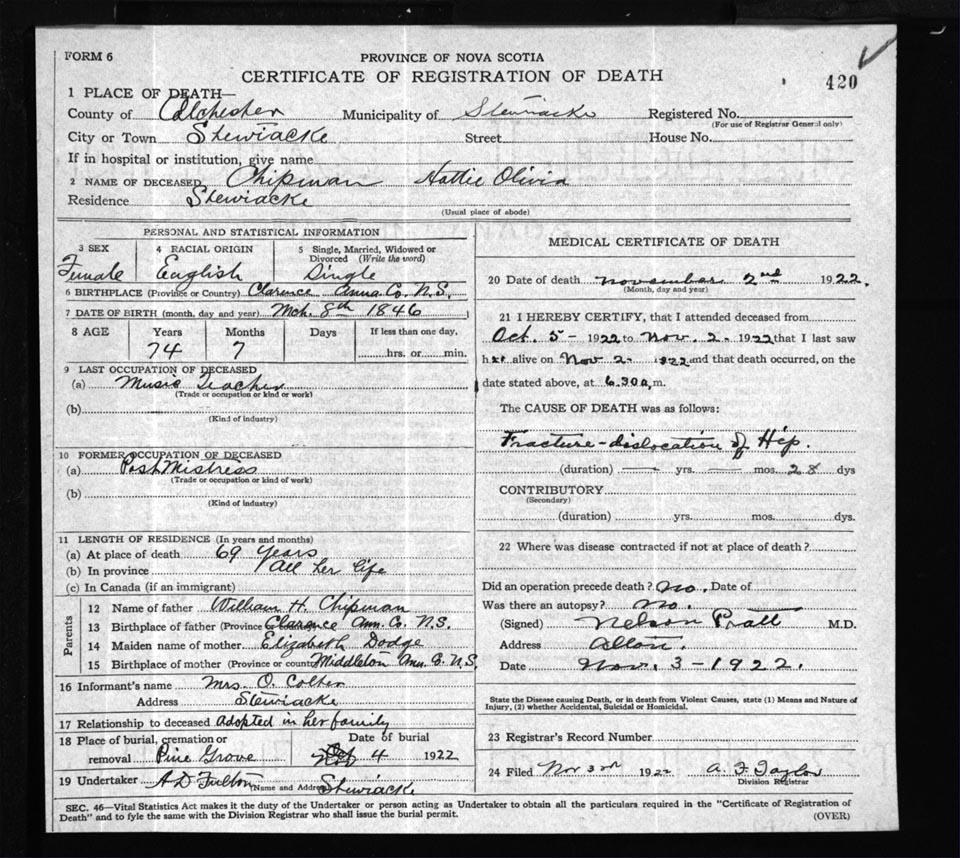 FORM 6
PROVINCE OF NOVA SCOTIA
CERTIFICATE OF REGISTRATION OF DEATH
420
1 PLACE OF DEATH—
County of Colchester Municipality of Stewiacke Registered No.
(For use of Registrar General only)
City or Town Stewiacke Street House No.
If in hospital or institution, give name
2 NAME OF DECEASED Chipman Hattie Olivia
Residence Stewiacke
(Usual place of abode)
PERSONAL AND STATISTICAL INFORMATION
3 SEX 4 RACIAL ORIGIN 5 Single, Married, Widowed or Divorced (Write the word)
Female English Single
6 BIRTHPLACE (Province or Country) Clarence Anna. Co. N.S.
7 DATE OF BIRTH (month, day and year) Mch. 8th 1846
8 AGE Years Months Days If less than one day,
74 7 hrs. or min.
9 LAST OCCUPATION OF DECEASED
(a) Music Teacher
(Trade or occupation or kind or work)
(b)
(Kind of industry)
10 FORMER OCCUPATION OF DECEASED
(a) Post Mistress
(Trade or occupation or kind of work)
(b)
(Kind of industry)
11 LENGTH OF RESIDENCE (In years and months)
(a) At place of death 69 years
(b) In province all her life
(c) In Canada (if an immigrant)
Parents
12 Name of father William H. Chipman
13 Birthplace of father (Province Clarence Ann. Co. N.S.
14 Maiden name of mother Elizabeth Dodge
15 Birthplace of mother (Province or country Middleton Ann. Co. N.S.
16 Informant's name Mrs. O. Colter
Address Stewiacke
17 Relationship to deceased Adopted in her family
18 Place of burial, cremation or Date of burial
removal Pine Grove 4 1922
19 Undertaker A D Fulton Name and Address Stewiacke
MEDICAL CERTIFICATE OF DEATH
20 Date of death November 2nd 1922.
(Month, day and year)
21 I HEREBY CERTIFY, that I attended deceased from
Oct. 5- 1922 to Nov. 2. 1922 that I last saw
her alive on Nov 2- 1922 and that death occurred, on the
date stated above, at 6.30 a.m.
The CAUSE OF DEATH was as follows:
Fracture-dislocation of Hip.
(duration) — yrs. — mos. 28 dys
CONTRIBUTORY
(Secondary)
(duration) yrs. mos. dys.
22 Where was disease contracted if not at place of death?
Did an operation precede death? No. Date of
Was there an autopsy? No.
(Signed) Nelson Pratt M.D.
Address
Date Nov. 3-1922.
State the Disease causing Death, or in death from Violent Causes, state (1) Means and Nature of
Injury, (2) whether Accidental, Suicidal or Homicidal.
23 Registrar's Record Number
24 Filed Nov 3rd 1922 A. F. Taylor
Division Registrar
SEC. 46—Vital Statistics Act makes it the duty of the Undertaker or person acting as Undertaker to obtain all the particulars required in the "Certificate of Registration of
Death" and to fyle the same with the Division Registrar who shall issue the burial permit. (OVER)